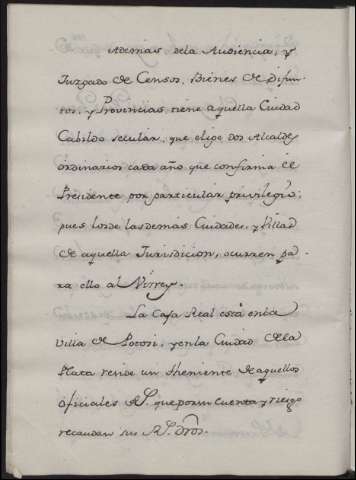 Ademas dela Audiencia, y
Juzgado de Censos, Bienes de Difun
tos, y Provincias, tiene aquella Ciudad
Cabildo secular, que elige dos Alcaldes
ordinarios cada año que confirma el
Presidente por particular privilegio;
pues los de las demas Ciudades, y Villas
de aquella Jurisdicion, ocurren pa
ra ello al Virrey.
La Caja Real está en la
Villa de Potosi, y en la Ciudad de la
Plata reside un theniente de aquellos
oficiales R.s que por su cuenta y riesgo
recaudan sus R.s Dros.